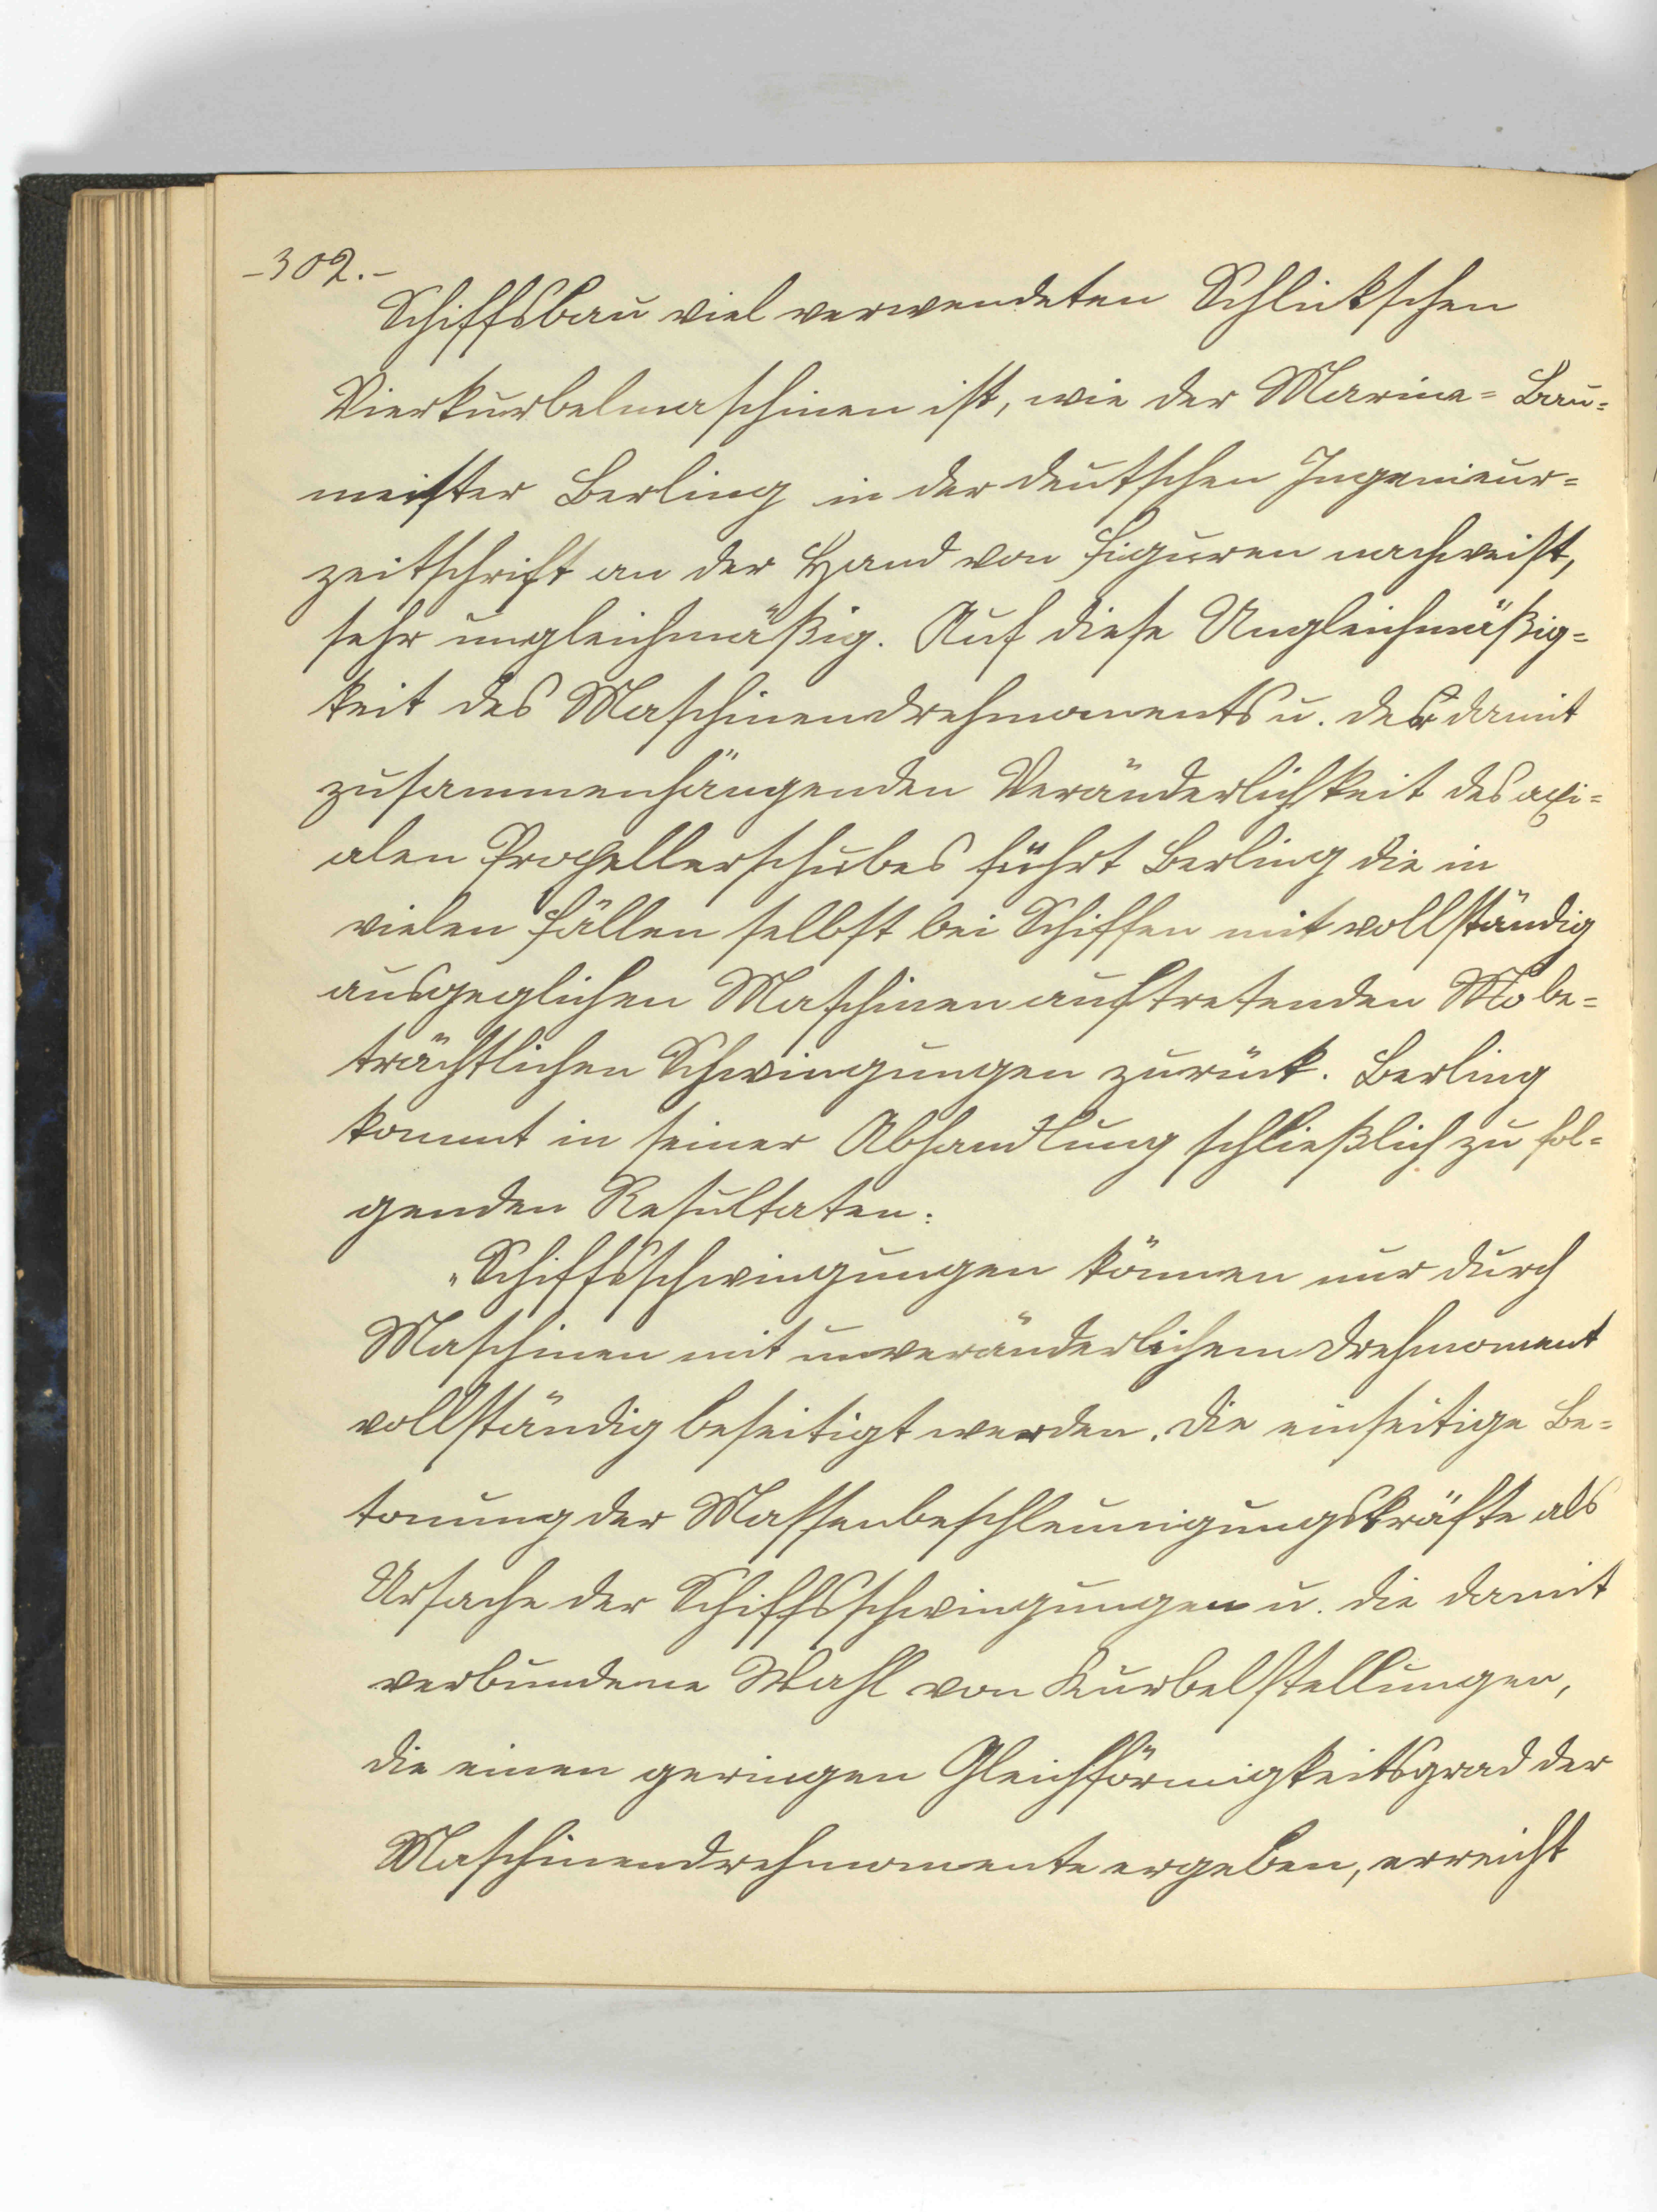 -302.-
Schiffsbau viel verwendeten Schlickschen
Vierkurbelmaschinen ist, wie der Marine=Bau=
meister Berling in der deutschen Ingenieur=
zeitschrift an der Hand von Figuren nachweist,
sehr ungleichmäßig. Auf diese Ungleichmäßig=
keit des Maschinendrehmoments u. der damit
zusammenhängenden Veränderlichkeit des axi=
alen Propellerschubes führt Berling die in
vielen Fällen selbst bei Schiffen mit vollständig
ausgeglichen Maschinen auftretenden be=
trächtlichen Schwingungen zurück. Berling
kommt in seiner Abhandlung schließlich zu fol=
genden Resultaten:
"Schiffsschwingungen können nur durch
Maschinen mit unveränderlichem Drehmoment
vollständig beseitigt werden. Die einseitige Be=
tonung der Massenbeschleunigungskräfte als
Ursache der Schiffsschwingungen u. die damit
verbundene Wahl von Kurbelstellungen,
die einen geringen Gleichförmigkeitsgrad der
Maschinendrehmomente ergeben, erreicht